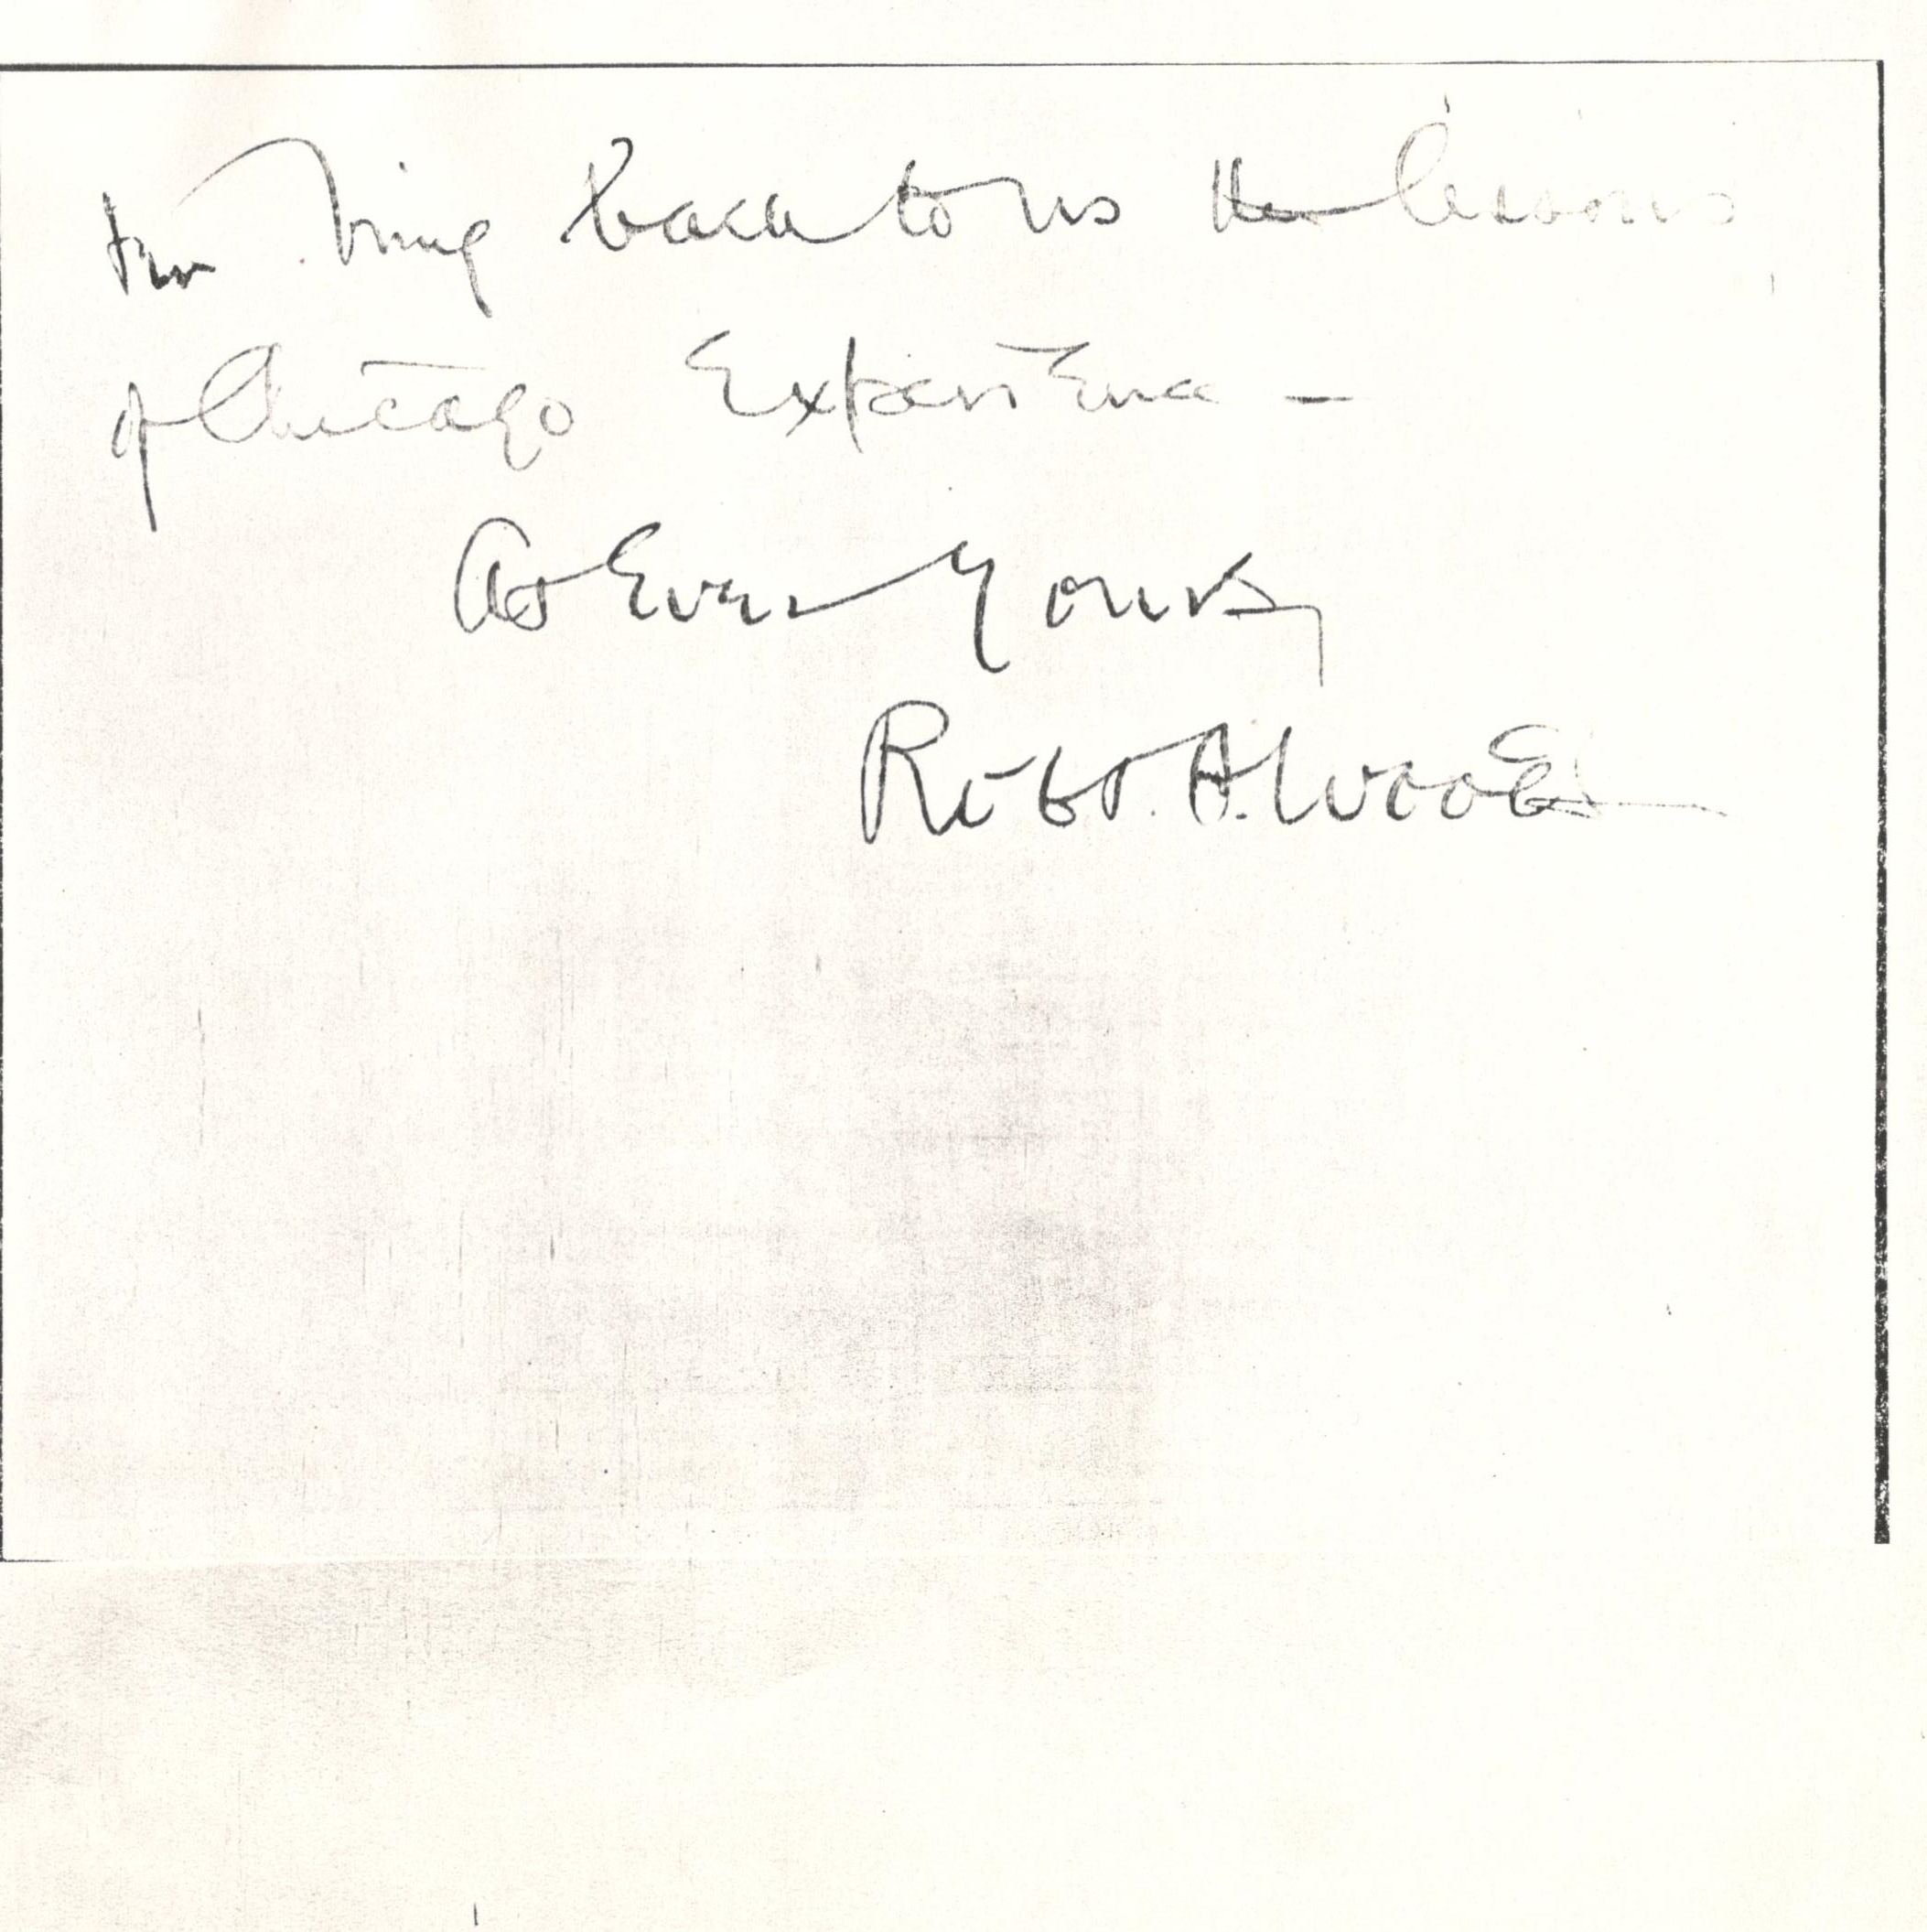 bring back to us the lessons
of Chicago Experience —
As Ever Yours,
Robt. A. Woods